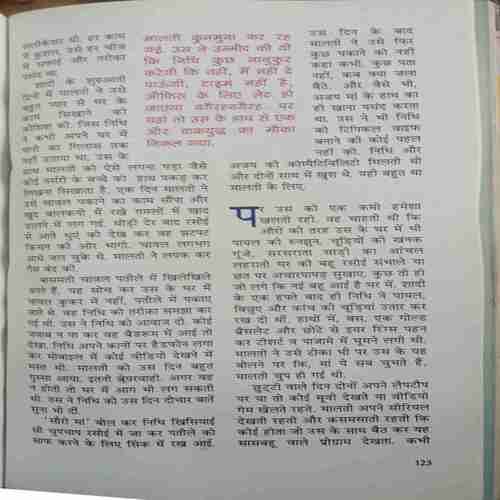 सलीकेदार थी. हर काम
में कुशल. उसे हर चीज
में सफाई और तरीका
पसंद था.
शादी के शुरुआती
दिनों में मालती ने उसे
बहुत प्यार से घर के
काम सिखाने की
कोशिश की. जिस निधि
ने कभी अपने घर में
पानी का गिलास तक
नहीं उठाया था, उस के
हाथ मालती को ऐसे लगना पड़ा जैसे
कोई नर्सरी के बच्चे को हाथ पकड़ कर
लिखना सिखाता है. एक दिन मालती ने
उसे चावल पकाने का काम सौंपा और
खुद बालकनी में रखे गमलों में खाद
डालने में लग गई. थोड़ी देर बाद रसोई
में आते धुएं को देख कर वह झटपट
किचन की ओर भागी. चावल लगभग
आधे जल चुके थे. मालती ने लपक कर
गैस बंद की.
बासमती चावल पतीले में खिलेखिले
बनते हैं, यह सोच कर उस के घर में
चावल कुकर में नहीं, पतीले में पकाए
जाते थे. वह निधि को तरीका समझा कर
गई थी. उस ने निधि को आवाज दी. कोई
जवाब न पा कर वह बैडरूम में आई तो
देखा, निधि अपने कानों पर हैडफोन लगा
कर मोबाइल में कोई वीडियो देखने में
मस्त थी. मालती को उस दिन बहुत
गुस्सा आया, इतनी बेपरवाही. अगर वह
न होती तो घर में आग भी लग सकती
थी. उस ने निधि को उस दिन दोचार बातें
सुना भी दीं.
'सौरी मां' बोल कर निधि खिसियाई
थी चुपचाप रसोई में जा कर पतीले को
साफ करने के लिए सिंक में रख आई.
मालती कुनमुना कर रह
गई. उस ने उम्मीद की थी
कि निधि कुछ नानुकुर
करेगी कि नहीं, मैं नहीं दे
पाऊंगी, टाइम नहीं है,
औफिस के लिए लेट हो
जाएगा वगैरहवगैरह. पर
यहां तो उस के हाथ से एक
और वाकयुद्ध का मौका
निकल गया.
उस दिन के बाद
मालती ने उसे फिर
कुछ पकाने को नहीं
कहा कभी. कुछ पता
नहीं, कब क्या जला
बैठे. और वैसे भी,
अजय मां के हाथ का
ही खाना पसंद करता
था. उस ने भी निधि
को टिपिकल वाइफ
बनाने की कोई पहल
नहीं की. निधि और
अजय की कौम्पैटिबिलिटी मिलती थी
और दोनों साथ में खुश थे, यही बहुत था
मालती के लिए.
पर उस को एक कमी हमेशा
खलती रही. वह चाहती थी कि
औरों की तरह उस के घर में भी
पायल की रुनझुन, चूड़ियों की खनक
गूंजे. सरसराता साड़ी का आंचल
लहराती घर की बहू रसोई संभाले या
छत पर अचारपापड़ सुखाए. कुछ तो हो
जो लगे कि नई बहू आई है घर में. शादी
के एक हफ्ते बाद ही निधि ने पायल,
बिछुए और कांच की चूड़ियां उतार कर
रख दी थीं. हाथों में, बस, एक गोल्ड
ब्रैसलेट और छोटे से इयर रिंग्स पहन
कर टीशर्ट व पाजामे में घूमने लगी थी.
मालती ने उसे टोका भी पर उस के यह
बोलने पर कि, मां ये सब चुभते हैं,
मालती चुप हो गई थी.
छुट्टी वाले दिन दोनों अपने लैपटौप
पर या तो कोई मूवी देखते या वीडियो
गेम खेलते रहते. मालती अपने सीरियल
देखती रहती और कसमसाती रहती कि
कोई होता जो उस के साथ बैठ कर यह
सासबहू वाले प्रोग्राम देखता. कभी
123